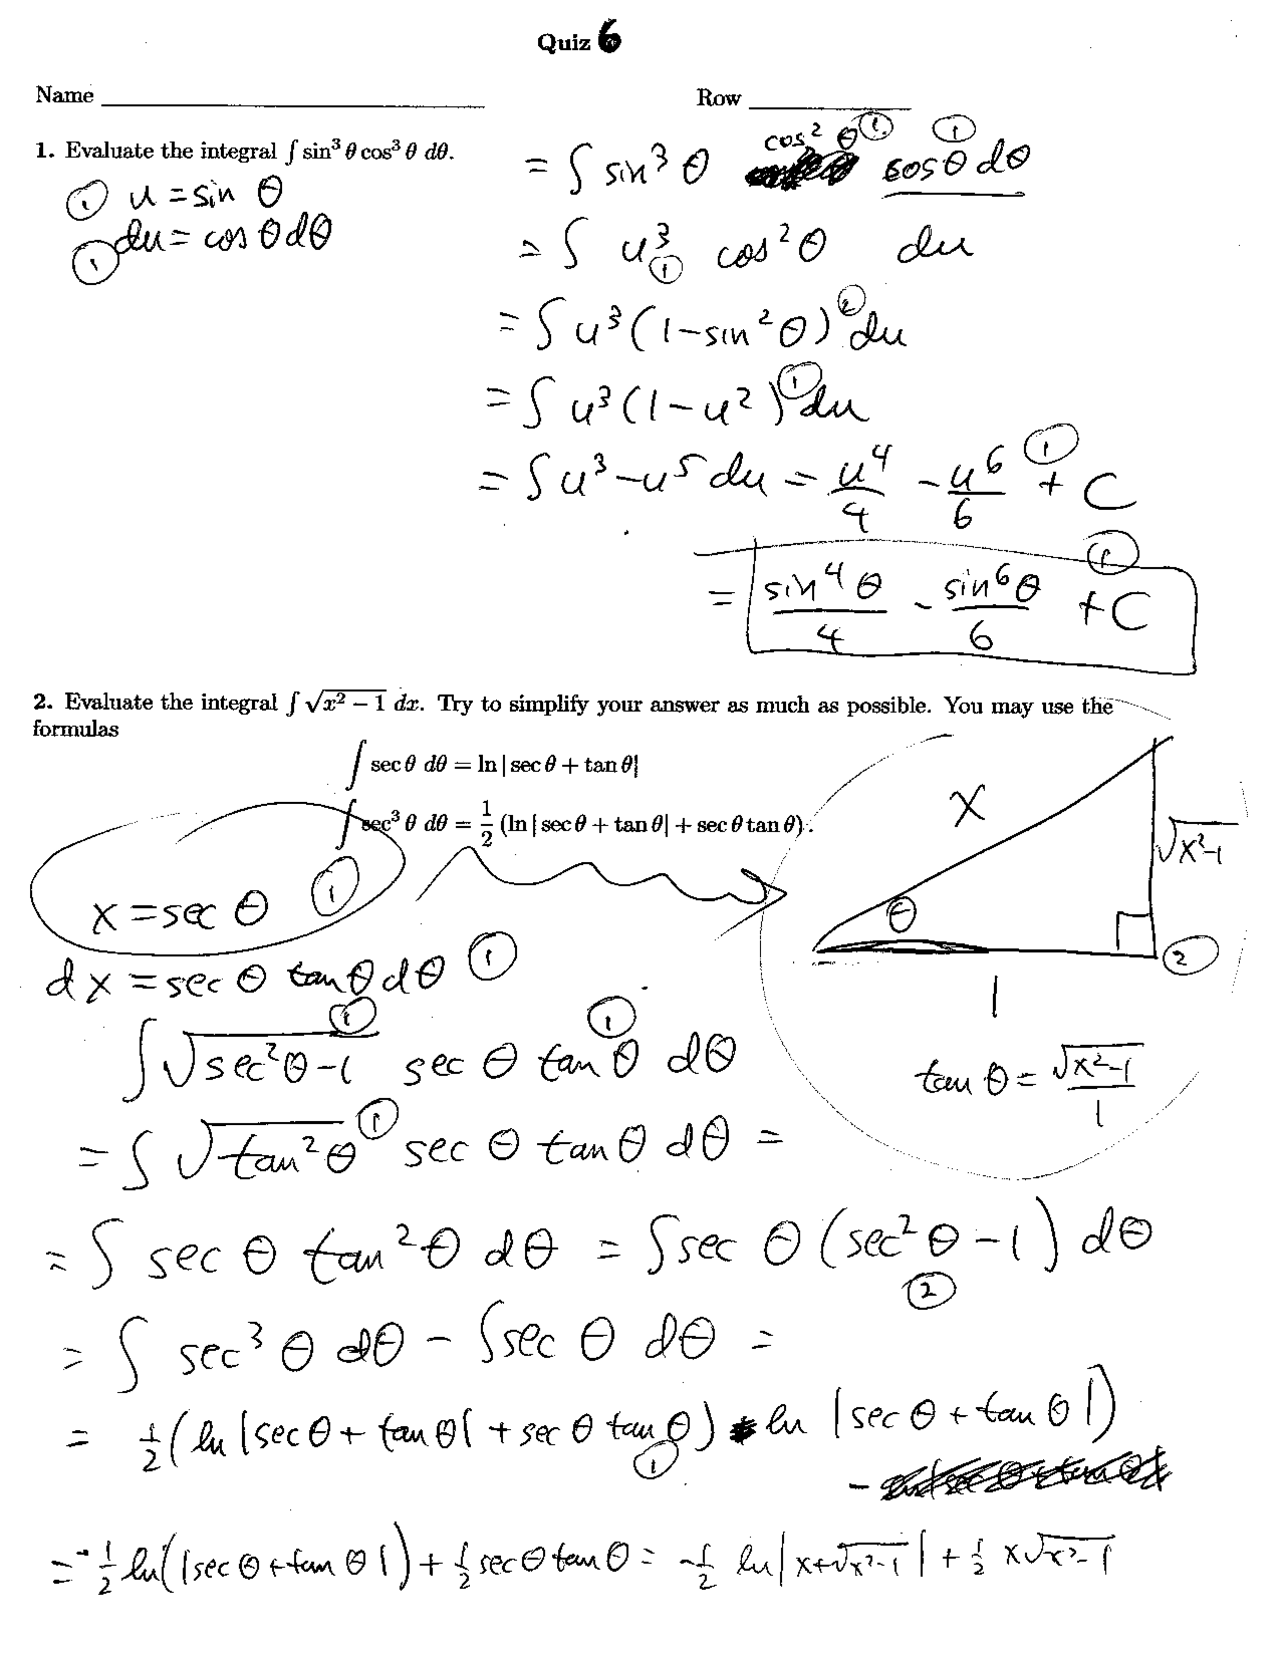 Quiz 6
Name ____ Row ____
1. Evaluate the integral ∫ sin³ θ cos³ θ dθ.
① u = sin θ
① du = cos θ dθ
= ∫ sin³ θ cos² θ ① cos θ dθ ①
= ∫ u³ ① cos² θ du
= ∫ u³ (1 − sin² θ) ② du
= ∫ u³ (1 − u²) ① du
= ∫ u³ − u⁵ du = u⁴/4 − u⁶/6 + C ①
= sin⁴ θ/4 − sin⁶ θ/6 + C ①
2. Evaluate the integral ∫ √(x² − 1) dx. Try to simplify your answer as much as possible. You may use the
formulas
∫ sec θ dθ = ln | sec θ + tan θ|
∫ sec³ θ dθ = 1/2 (ln | sec θ + tan θ| + sec θ tan θ).
x = sec θ ①
dx = sec θ tan θ dθ ①
x
√(x²−1)
θ
②
1
tan θ = √(x²−1)/1
∫ √(sec² θ − 1) ① sec θ tan θ ① dθ
= ∫ √(tan² θ) ① sec θ tan θ dθ =
= ∫ sec θ tan² θ dθ = ∫ sec θ (sec² θ − 1) dθ
②
= ∫ sec³ θ dθ − ∫ sec θ dθ =
= 1/2 (ln |sec θ + tan θ| + sec θ tan θ) ① ln |sec θ + tan θ|)
−
= −1/2 ln(|sec θ + tan θ|) + 1/2 sec θ tan θ = −1/2 ln |x + √(x²−1)| + 1/2 x√(x²−1)